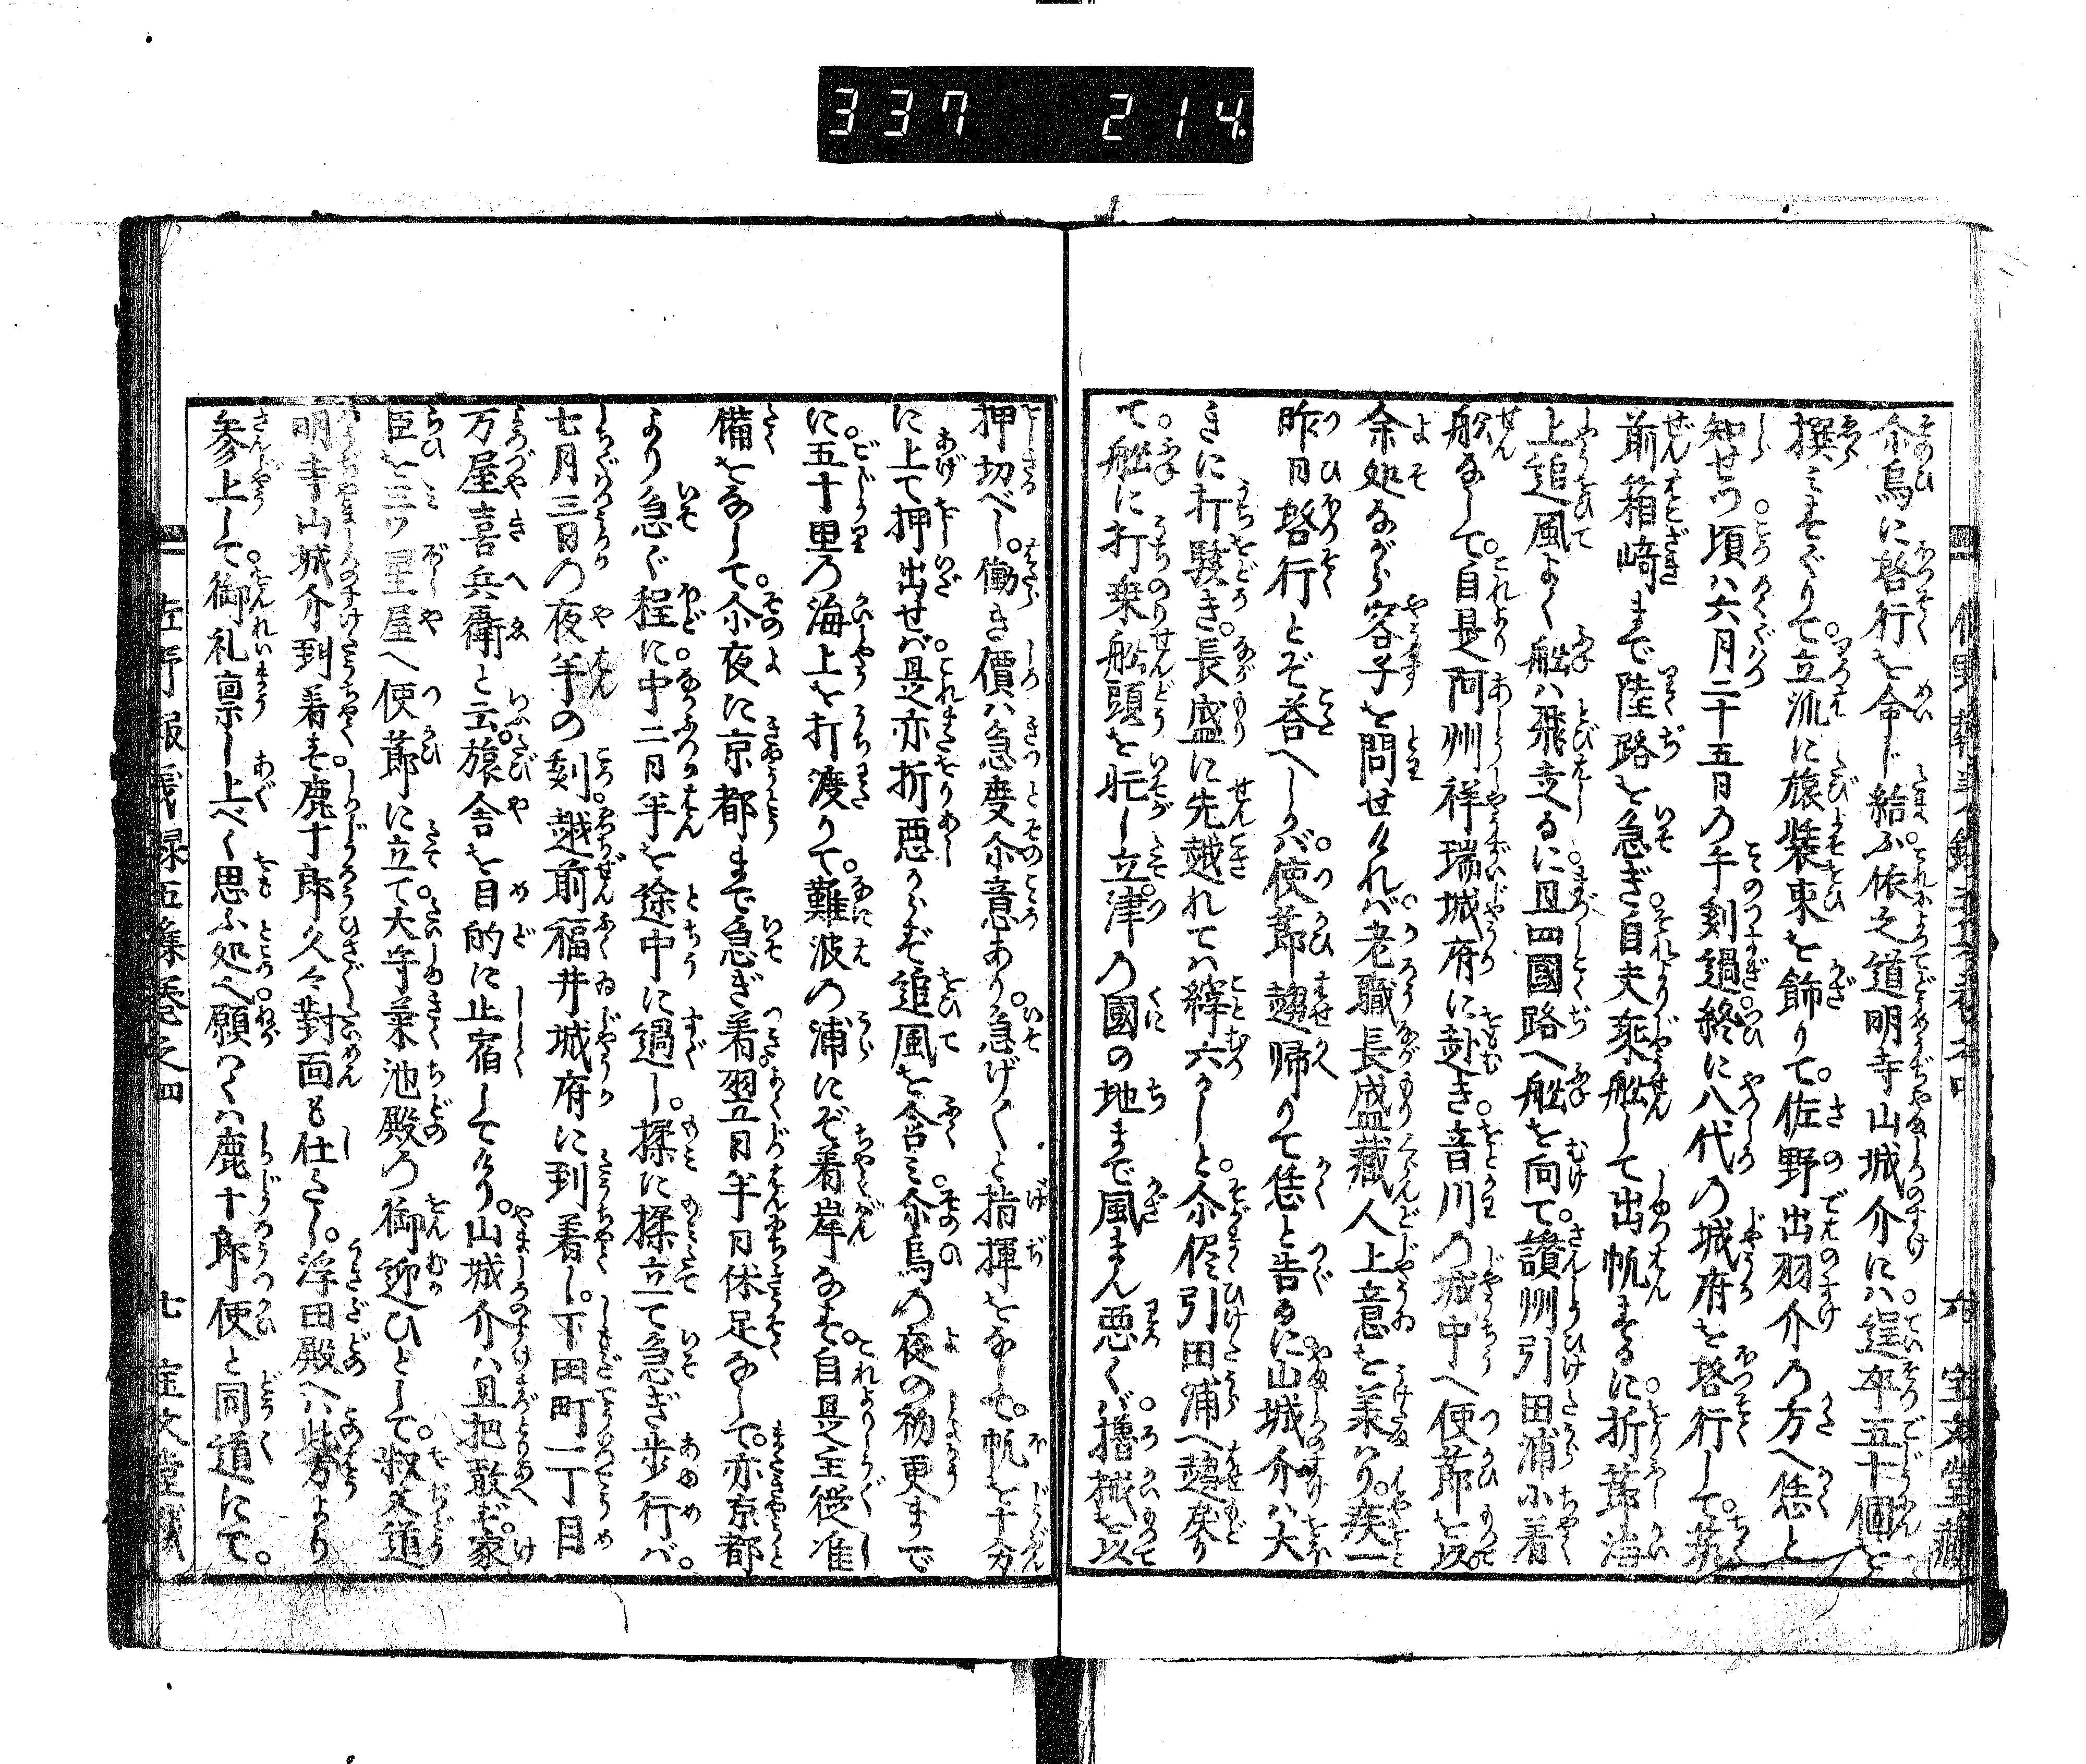 337 214
尒烏に啓行を命ド給ふ依之道明寺山城介にハ逞卒五十個を
撰ミすぐりて立派に旅装束を飾りて。佐野出羽介の方へ恁と
知せつ頃ハ六月二十五日の午刻過終に八代の城府を啓行して。筑
前箱﨑まで陸路を急ぎ自夫乗舩して出帆するに折節海
上追風よく舩ハ飛走るに且四國路へ舩を向て。讃州引田浦に着
舩なして。自是阿州祥瑞城府に赴き音川の城中へ使節を以。
余処ながら客子を問せけれバ老職長盛藏人上意を美けり。疾一
昨日啓行とぞ荅へしかバ使節趨帰りて恁と告るに山城介ハ大
きに打駭き。長盛に先越れてハ縡六かしと尒侭引田浦へ趨戻り
て舩に打乗舩頭を忙し立津の國の地まで風まん悪くバ擼械を以
押切べし。働き價ハ急度尒意あり急げ〱と指揮をなして。帆を十分
に上て押出せバ是亦折悪からず追風を含ミ尒烏の夜の初更まで
に五十里の海上を打渡りて。難波の浦にぞ着岸なす。自是主従准
備をなして。尒夜に京都まで急ぎ着。翌五日半日休足なして。亦京都
より急ぐ程に中二日半を途中に過し。揉に揉立て急ぎ歩行バ。
七月三日の夜半の刻越前福井城府に到着し。下田町一丁目
万屋喜兵衛と云。旅舎を目的に止宿してけり。山城介ハ且把敢ず。家
臣を三ツ星屋へ使節に立て大半菊池殿の御迎ひとして。叔父道
明寺山城介到着す。鹿十郎久々對面も仕たし。浮田殿へハ此方より
参上して。御礼稟し上べく思ふ処へ願くハ鹿十郎使と同道にて。
佐野報義録五集巻之四
七